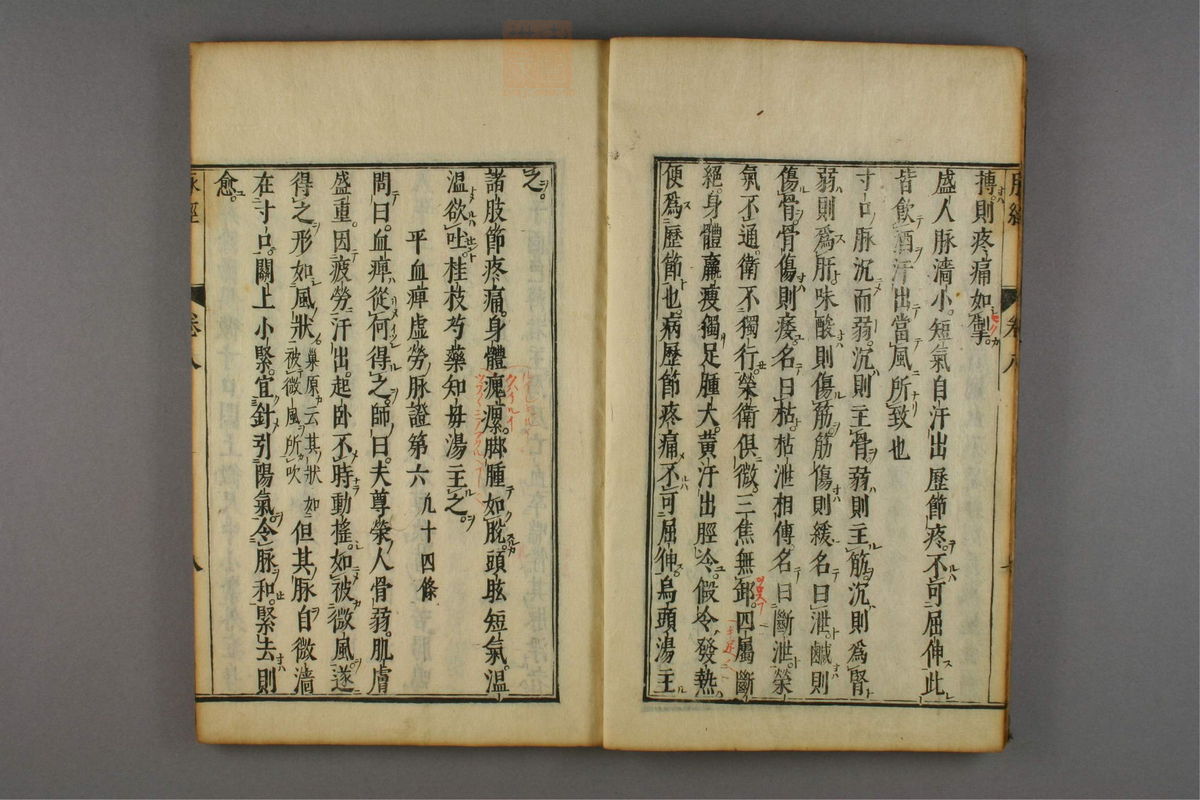 搏則疼痛如掣
盛人脉濇小短氣自汗出歷節疼不可屈伸此
皆飲酒汗出當風所致也
寸口脉沉而弱沉則主骨弱則主筋沉則為腎
弱則為肝味酸則傷筋筋傷則緩名曰泄鹹則
傷骨骨傷則痿名曰枯枯泄相傳名曰斷泄榮
氣不通衛不獨行榮衛俱微三焦無御四屬斷
絕身體羸瘦獨足腫大黃汗出脛冷假令發熱
便為歷節也病歷節疼痛不可屈伸烏頭湯主
之
諸肢節疼痛身體魁瘰脚腫如脫頭眩短氣温
温欲吐桂枝芍藥知毋湯主之
平血痺虛勞脉證第六 九十四條
問曰血痺從何得之師曰夫尊榮人骨弱肌膚
盛重因疲勞汗出起卧不時動搖如被微風遂
得之形如風狀巢原云其狀如被微風所吹但其脉自微濇
在寸口關上小緊宜針引陽氣令脉和緊去則
愈
脉經 卷八 八